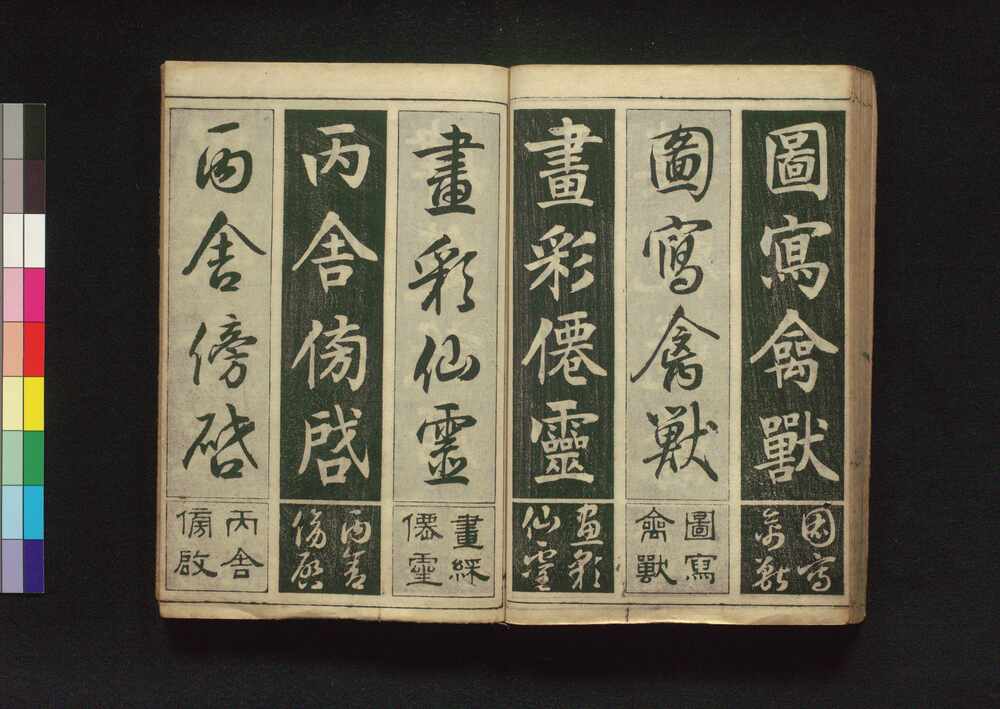 圖寫禽獸
圖寫
禽獸
圖寫禽獸
圖寫
禽獸
畫彩僊靈
畫彩
仙靈
畫彩仙靈
畫綵
僊靈
丙舍傍啓
丙舍
傍啓
丙舍傍啓
丙舍
傍啟